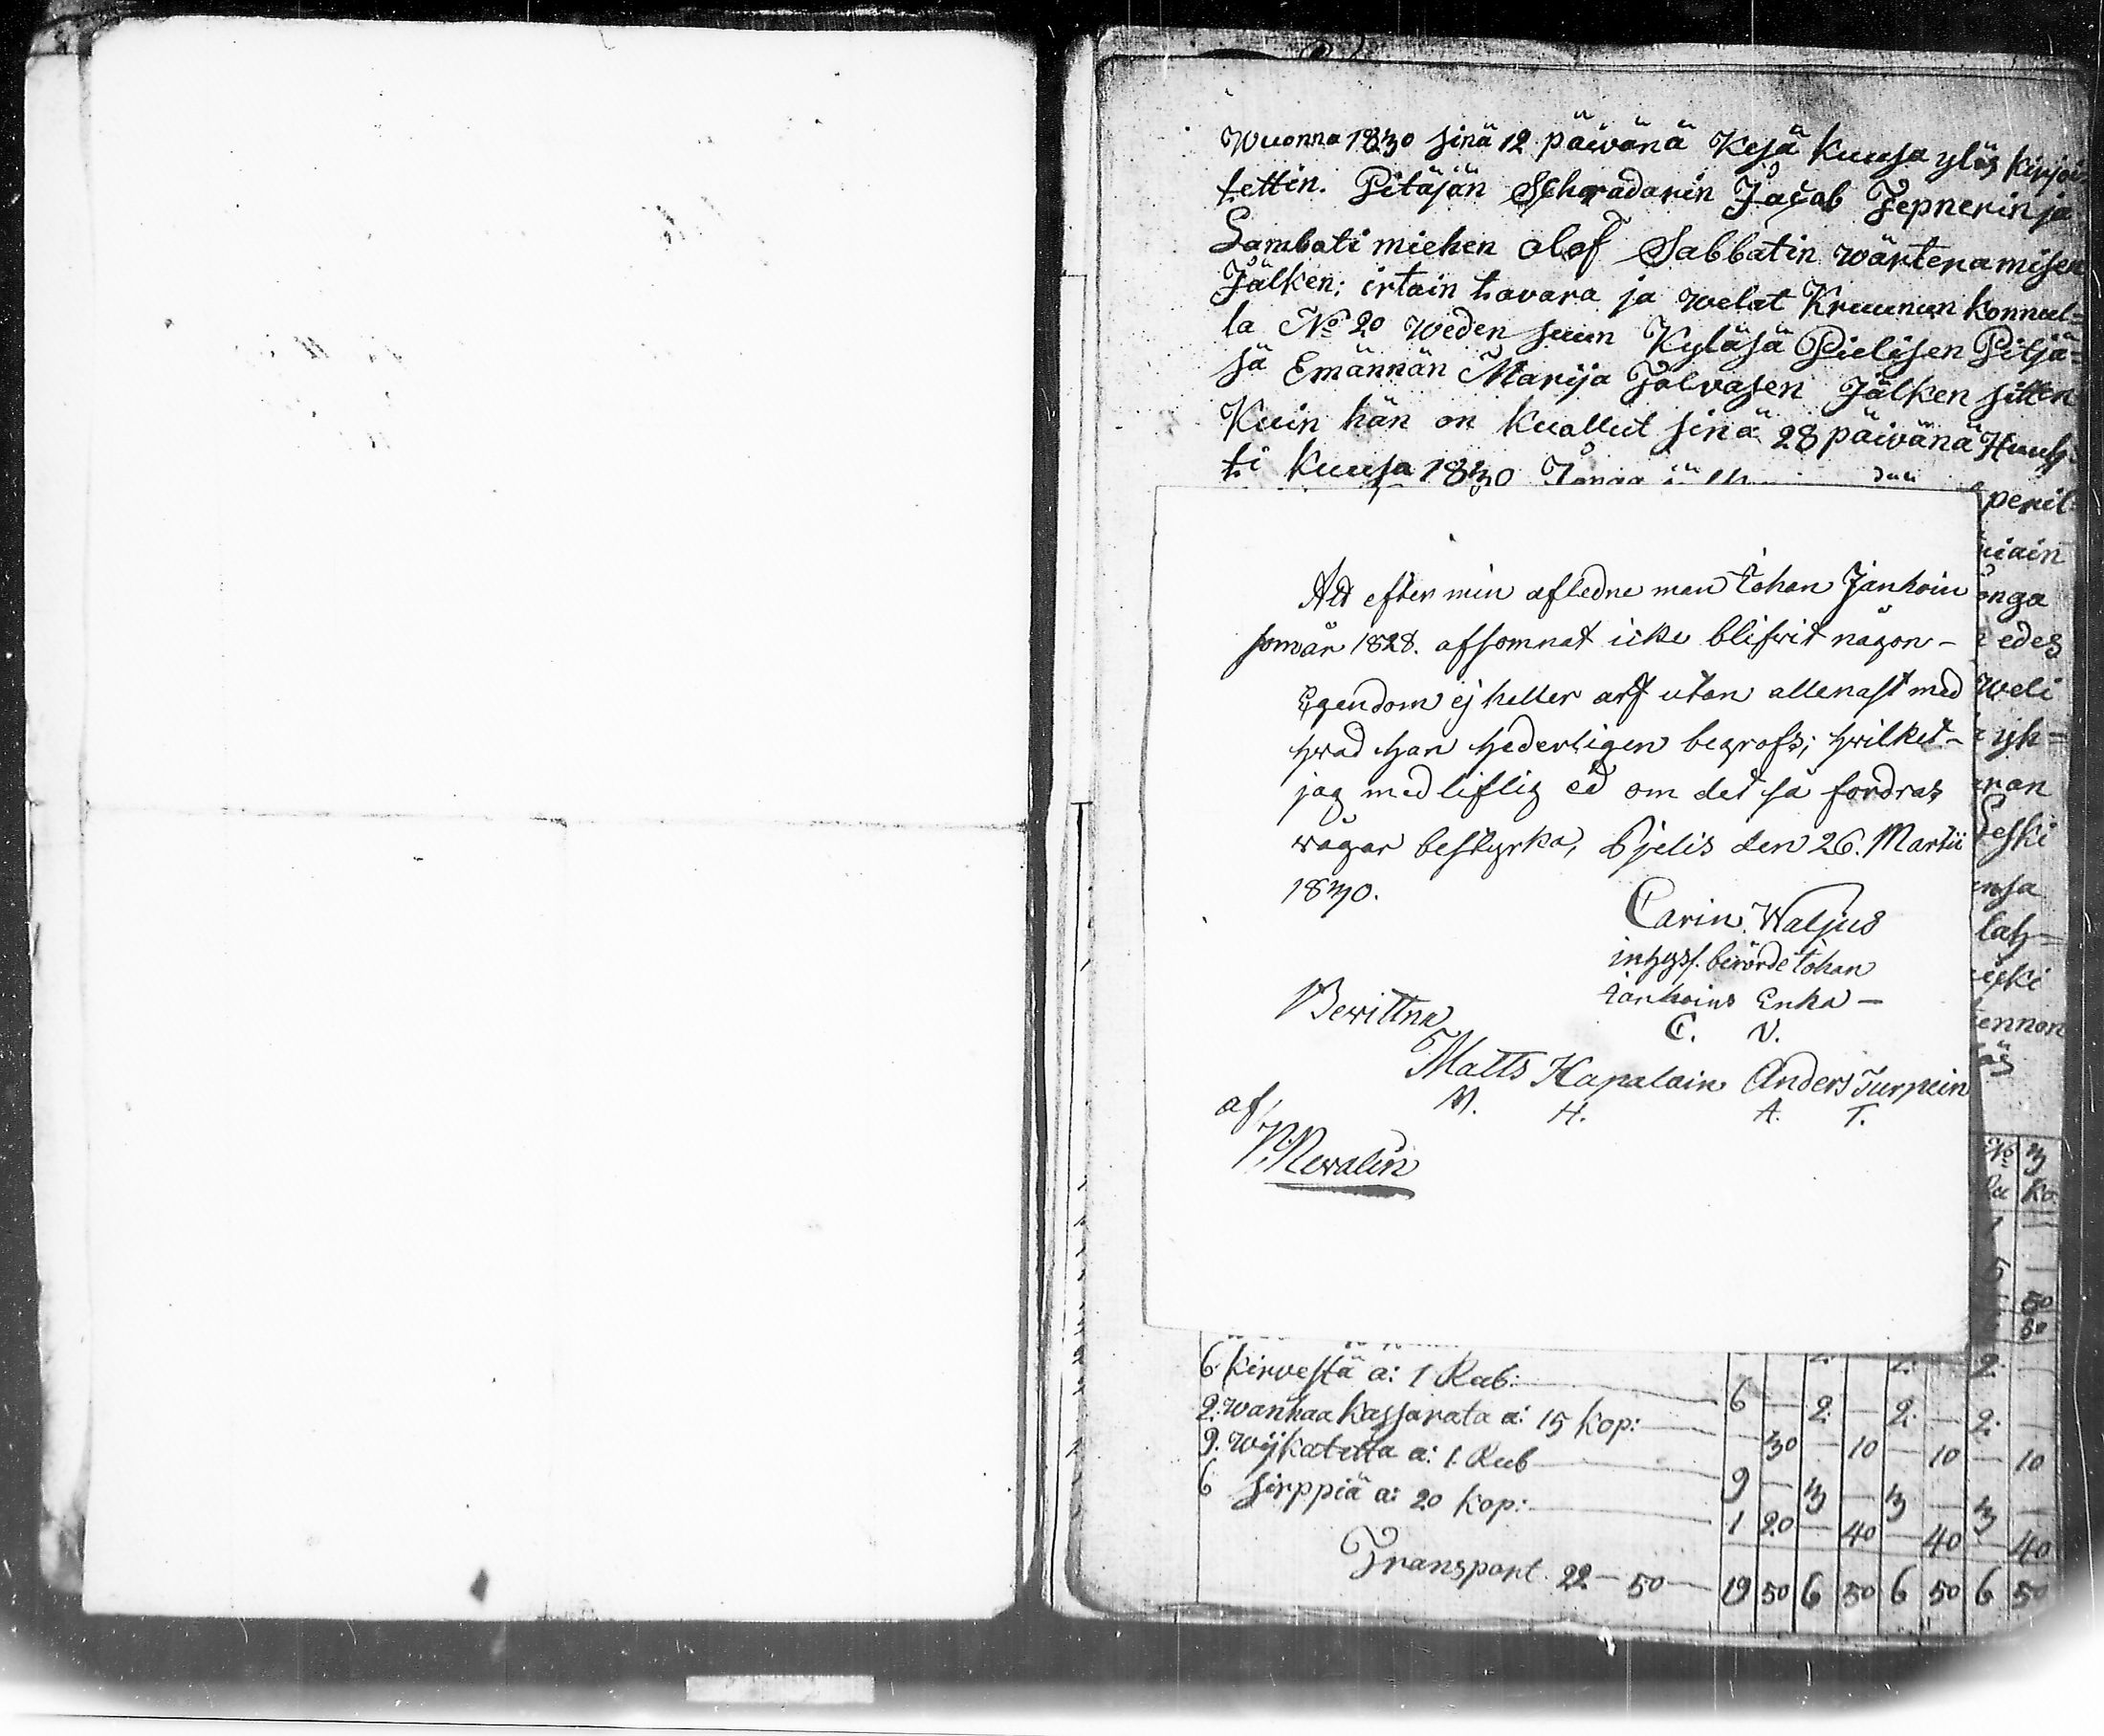 Wuonna 1830 sinä 12 päivänä Kesä kuusa ylös kirjoi-
tettin. Pitäjän Schradarin Jacob Tepnerin ja
Lambati miehen olof Sabbatin wärtenamisen
Jälken; irtain tavara ja welat Kruunun konnul=
la No 20 Weden suun Kyläsä Pielisen Pitjä=
sä Emännän Marija Jolvasen Jälken sitten
Kuin hän on kuollut sinä 28 päivänä Huuh-
ti kuusa 1830
peril=
uiain
onga
edes
weli
yk=
eran
Leski
ensa
lah=
ennon
Att efter min afledne man Johan Janhoin
som år 1828. afsomnat icke blifvit någon-
Egendom ej heller arf utan allenast med
hvad han hederligen begrofs; hvilket-
jag med liflig ed om det så fordras
wågar bestyrka, Pjelis den 26. Martii
1830.
Carin Waljus
inhyss. berörde Johan
Janhoins Enka-
C. V.
Bewittna
Matts Kapalain Anders Turpein
M. H. A. T.
af
P. Newalin
No 3
Ru Ko.
1
5 —
50
80
2
6 kirvestä a: 1 Rub: 6 — 2. — 2. — 2. —
2. wanhaa kassarata a: 15 kop: — 30 — 10 — 10 — 10
9. wijkatetta a: 1. Rub 9 — 3 — 3 — 3 —
6 sirppiä a: 20 kop: 1 20 — 40 — 40 — 40
Transport 22 — 50 — 19 50 6 50 6 50 6 50